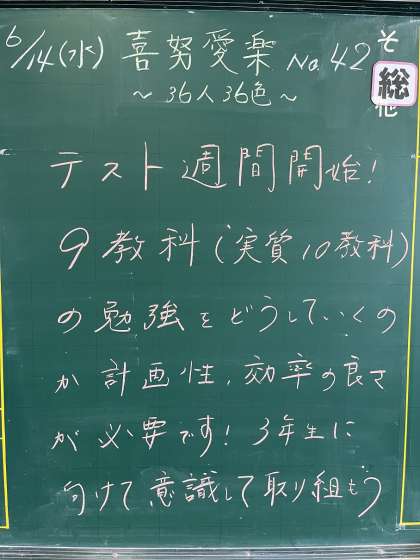 6/14(水) 喜努愛楽 No.42
～36人36色～
テスト週間開始!
9教科(実質10教科)
の勉強をどうしていくの
か計画性、効率の良さ
が必要です!3年生に
向けて意識して取り組もう
その他
総